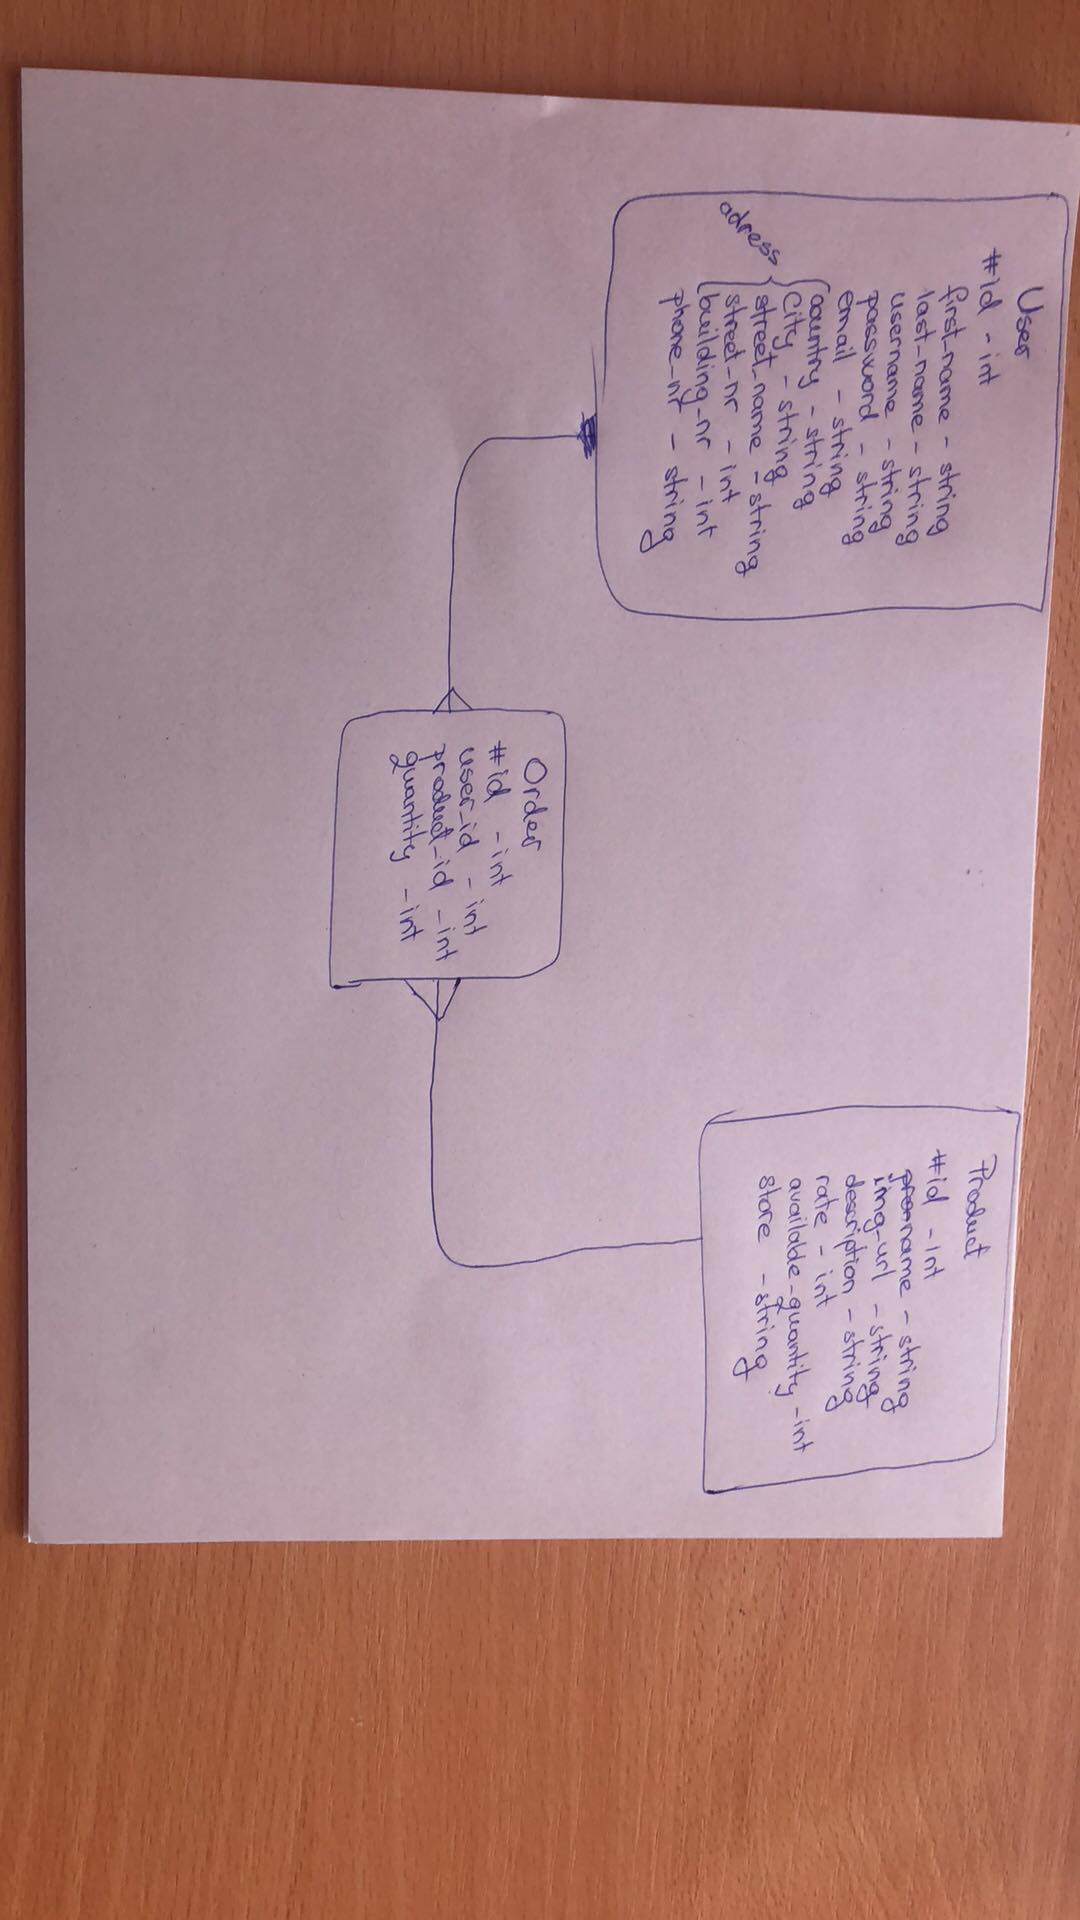 User
#id - int
first_name - string
last_name - string
username - string
password - string
email - string
country - string
city - string
street_name - string
street_nr - int
building_nr - int
phone_nr - string
adress
Order
#id - int
user_id - int
product_id - int
quantity - int
Product
#id - int
name - string
img_url - string
description - string
rate - int
available_quantity - int
store - string